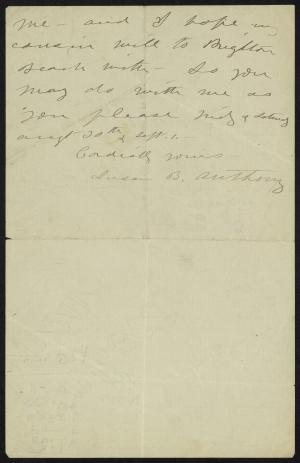 me - and I hope my
cousin will to Brighton
Beach with - So you
may do with me as
you please Friday & Saturday
augt 30th & Sept. 1. -
Cordially yours
Susan B. Anthony